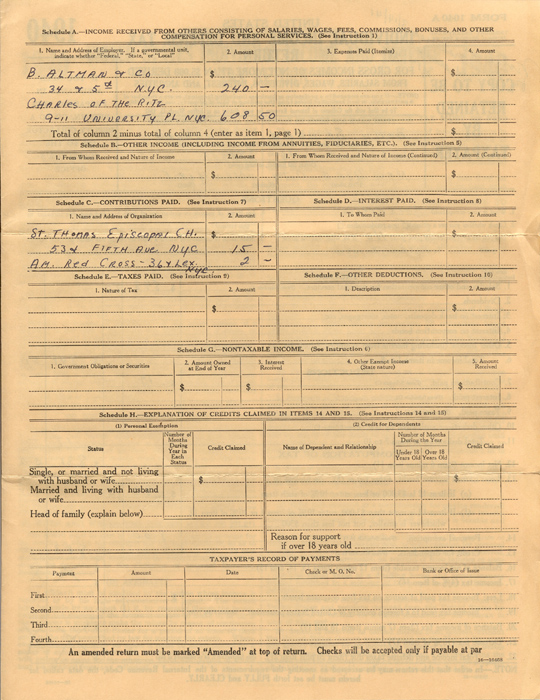 Schedule A.—INCOME RECEIVED FROM OTHERS CONSISTING OF SALARIES, WAGES, FEES, COMMISSIONS, BONUSES, AND OTHER
COMPENSATION FOR PERSONAL SERVICES. (See Instruction 1)
1. Name and Address of Employer. If a governmental unit, indicate whether "Federal," "State," or "Local" 2. Amount 3. Expenses Paid (Itemize) 4. Amount
B. ALTMAN & CO $ $
34 & 5th N.Y.C. 240 —
CHARLES OF THE RITZ
9-11 UNIVERSITY PL. NYC. 608 50
Total of column 2 minus total of column 4 (enter as item 1, page 1) $
Schedule B.—OTHER INCOME (INCLUDING INCOME FROM ANNUITIES, FIDUCIARIES, ETC.). (See Instruction 5)
1. From Whom Received and Nature of Income 2. Amount 1. From Whom Received and Nature of Income (Continued) 2. Amount (Continued)
$ $
Schedule C.—CONTRIBUTIONS PAID. (See Instruction 7) Schedule D.—INTEREST PAID. (See Instruction 8)
1. Name and Address of Organization 2. Amount 1. To Whom Paid 2. Amount
St. Thomas Episcopal CH. $ $
53 & FIFTH Ave. NYC 15 —
Am. Red Cross - 36 & Lex. 2 —
NYC
Schedule E.—TAXES PAID. (See Instruction 9) Schedule F.—OTHER DEDUCTIONS. (See Instruction 10)
1. Nature of Tax 2. Amount 1. Description 2. Amount
$ $
Schedule G.—NONTAXABLE INCOME. (See Instruction 6)
1. Government Obligations or Securities 2. Amount Owned at End of Year 3. Interest Received 4. Other Exempt Income (State nature) 5. Amount Received
$ $ $
Schedule H.—EXPLANATION OF CREDITS CLAIMED IN ITEMS 14 AND 15. (See Instructions 14 and 15)
(1) Personal Exemption (2) Credit for Dependents
Status Number of Months During Year in Each Status Credit Claimed Name of Dependent and Relationship Number of Months During the Year Under 18 Years Old Over 18 Years Old Credit Claimed
Single, or married and not living
with husband or wife $ $
Married and living with husband
or wife
Head of family (explain below)
Reason for support
if over 18 years old
TAXPAYER'S RECORD OF PAYMENTS
Payment Amount Date Check or M. O. No. Bank or Office of Issue
First
Second
Third
Fourth
An amended return must be marked "Amended" at top of return. Checks will be accepted only if payable at par